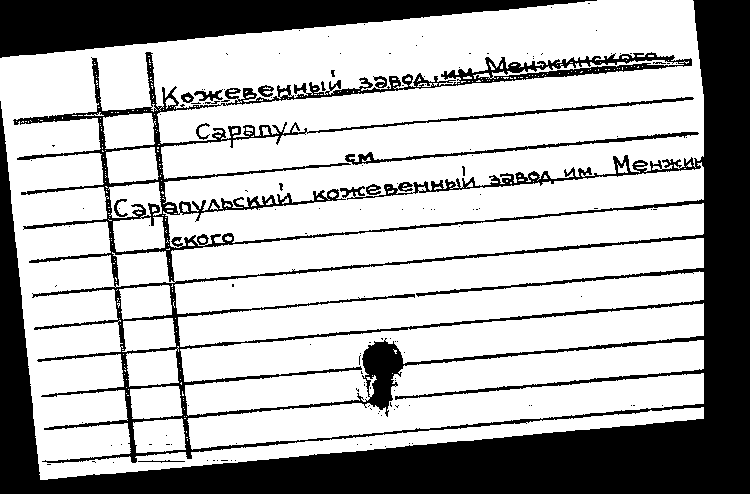 Кожевенный завод, им. Менжинского
Сарапул.
см.
Сарапульский кожевенный завод им. Менжин
ского